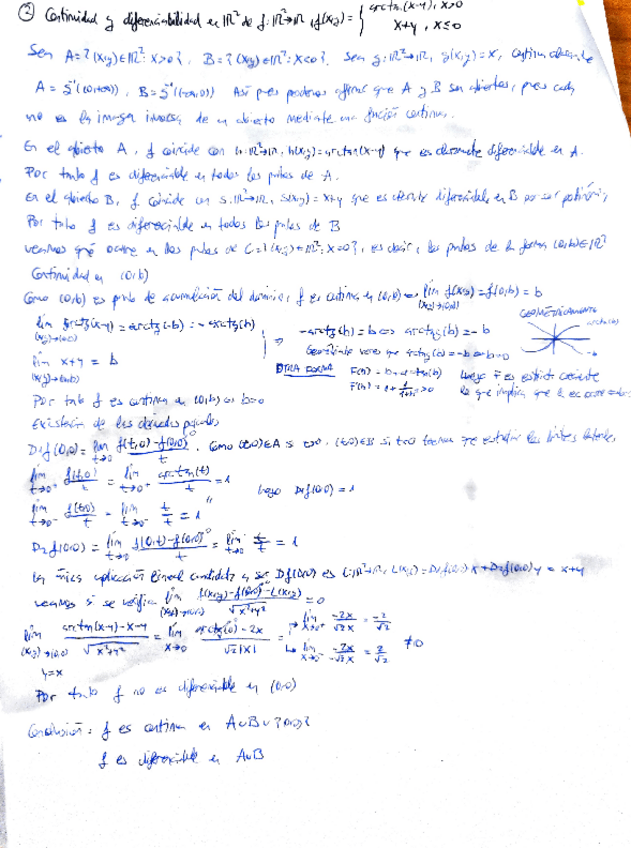 ② Continuidad y diferenciabilidad en ℝ² de f: ℝ²→ℝ, f(x,y) = { arctan(x-y), x>0
x+y, x≤0
Sean A = {(x,y)∈ℝ²: x>0}, B = {(x,y)∈ℝ²: x<0}. Sea g: ℝ²→ℝ, g(x,y)=x, continua
A = g⁻¹((0,+∞)), B = g⁻¹((-∞,0)) Así pues podemos afirmar que A y B son abiertos, pues cada
uno es la imagen inversa de un abierto mediante una función continua.
En el abierto A, f coincide con h: ℝ²→ℝ, h(x,y)=arctan(x-y) que es claramente diferenciable en A.
Por tanto f es diferenciable en todos los puntos de A.
En el abierto B, f coincide con s: ℝ²→ℝ, s(x,y)=x+y que es diferenciable en B por ser
Por tanto f es diferenciable en todos los puntos de B
Veamos qué ocurre en los puntos de C={(x,y)∈ℝ²: x=0}, es decir, los puntos de la forma (0,b)∈ℝ²
Continuidad en (0,b)
Como (0,b) es punto de acumulación del dominio, f es continua en (0,b) ⟺ lím f(x,y) = f(0,b) = b
(x,y)→(0,b)
lím arctg(x-y) = arctg(-b) = -arctg(b)
(x,y)→(0,b)
lím x+y = b
(x,y)→(0,b)
⇒ -arctg(b)=b ⟺ arctg(b)=-b
Geométricamente vemos que arctg(b)=-b ⟺ b=0
GEOMÉTRICAMENTE
-b
OTRA FORMA F(b) = b+arctg(b) luego F es estrict. creciente
F'(b) = 1+ 1/(1+b²) >0 lo que implica que
Por tanto f es continua en (0,b) ⟺ b=0
Existencia de las derivadas parciales
D₁f(0,0) = lím t→0 (f(t,0)-f(0,0))/t. Como (t,0)∈A si t>0, (t,0)∈B si t<0 tenemos que estudiar los límites laterales
lím t→0⁺ f(t,0)/t = lím t→0⁺ arctan(t)/t = 1
luego D₁f(0,0) = 1
lím t→0⁻ f(t,0)/t = lím t→0⁻ t/t = 1
D₂f(0,0) = lím t→0 (f(0,t)-f(0,0))/t = lím t→0 t/t = 1
La única aplicación lineal candidata a ser Df(0,0) es L: ℝ²→ℝ, L(x,y) = D₁f(0,0)x + D₂f(0,0)y = x+y
Veamos si se verifica lím (x,y)→(0,0) (f(x,y)-f(0,0)-L(x,y))/√(x²+y²) = 0
lím (x,y)→(0,0) y=x (arctan(x-y)-x-y)/√(x²+y²) = lím x→0 (arctg(0)-2x)/(√2|x|) = lím x→0⁺ -2x/(√2x) = -2/√2
lím x→0⁻ -2x/(-√2x) = 2/√2 ≠0
Por tanto f no es diferenciable en (0,0)
Conclusión: f es continua en A∪B∪{(0,0)}
f es diferenciable en A∪B